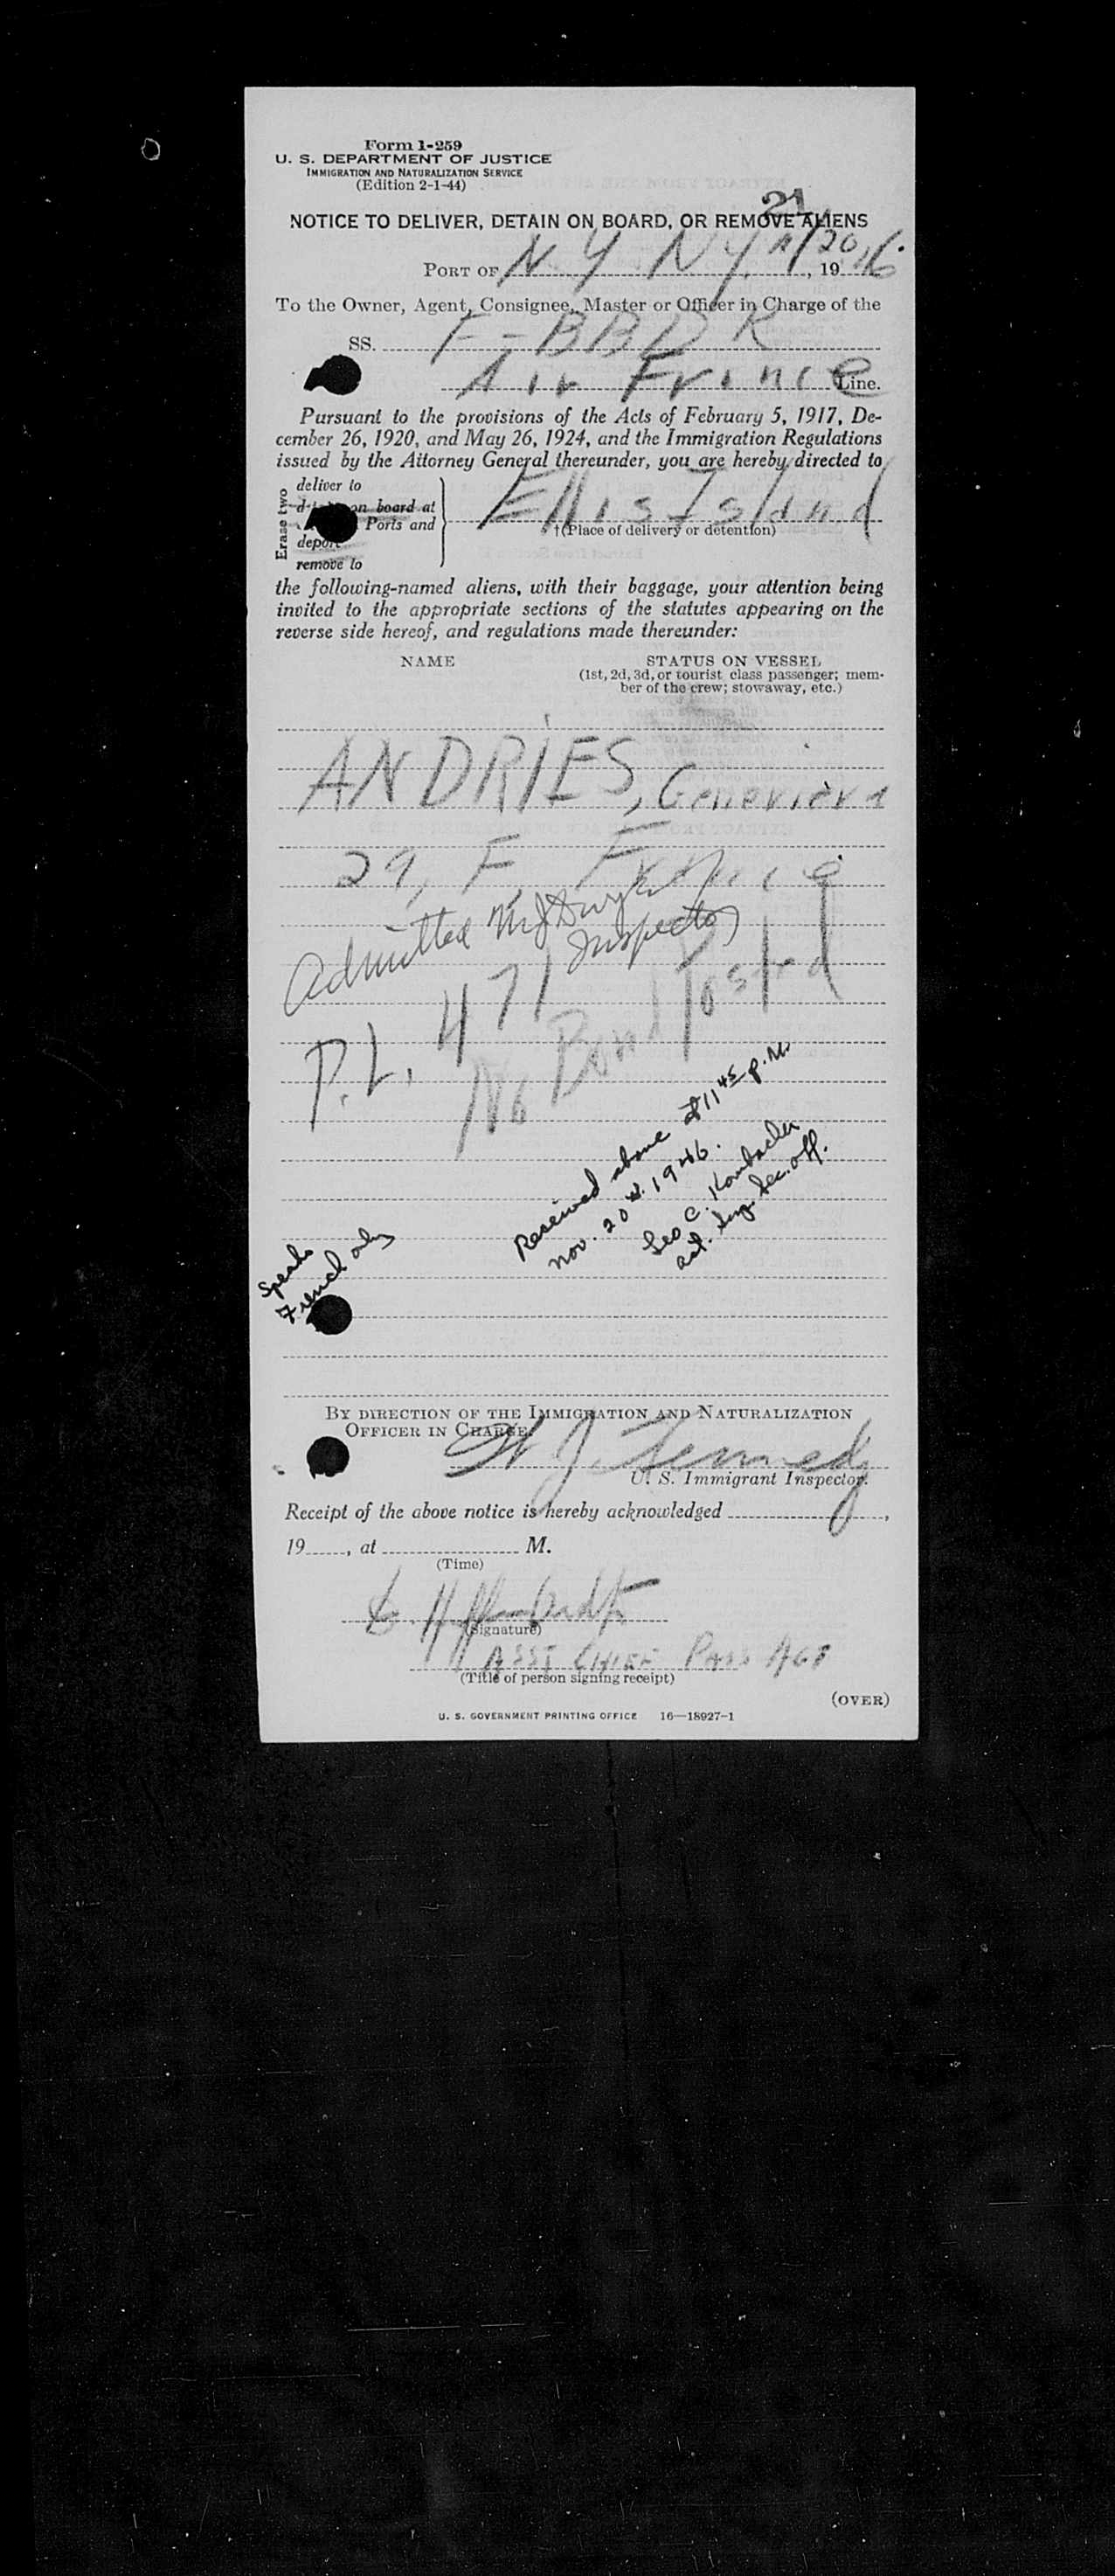 Form I-259
U. S. DEPARTMENT OF JUSTICE
IMMIGRATION AND NATURALIZATION SERVICE
(Edition 2-1-44)
21
NOTICE TO DELIVER, DETAIN ON BOARD, OR REMOVE ALIENS
PORT OF N.Y. N.Y. 11/20, 1946.
To the Owner, Agent, Consignee, Master or Officer in Charge of the
SS. F-BBDK
Air France Line.
Pursuant to the provisions of the Acts of February 5, 1917, De-
cember 26, 1920, and May 26, 1924, and the Immigration Regulations
issued by the Attorney General thereunder, you are hereby directed to
Erase two
deliver to
on board at
Ports and
deport
remove to
Ellis Island
†(Place of delivery or detention)
the following-named aliens, with their baggage, your attention being
invited to the appropriate sections of the statutes appearing on the
reverse side hereof, and regulations made thereunder:
NAME STATUS ON VESSEL
(1st, 2d, 3d, or tourist class passenger; mem-
ber of the crew; stowaway, etc.)
ANDRIES, Genevieve
29, F, France
Admitted
Inspector
P.L. 471
No Bond Posted
Received above at 11 45 p.m.
Nov. 20th. 1946.
Leo C.
act. Sec. off.
Speaks
French only
BY DIRECTION OF THE IMMIGRATION AND NATURALIZATION
OFFICER IN CHARGE.
J. Kennedy
U. S. Immigrant Inspector.
Receipt of the above notice is hereby acknowledged ,
19 , at M.
(Time)
(Signature)
ASST CHIEF PASS AGT
(Title of person signing receipt)
(OVER)
U. S. GOVERNMENT PRINTING OFFICE 16—18927-1